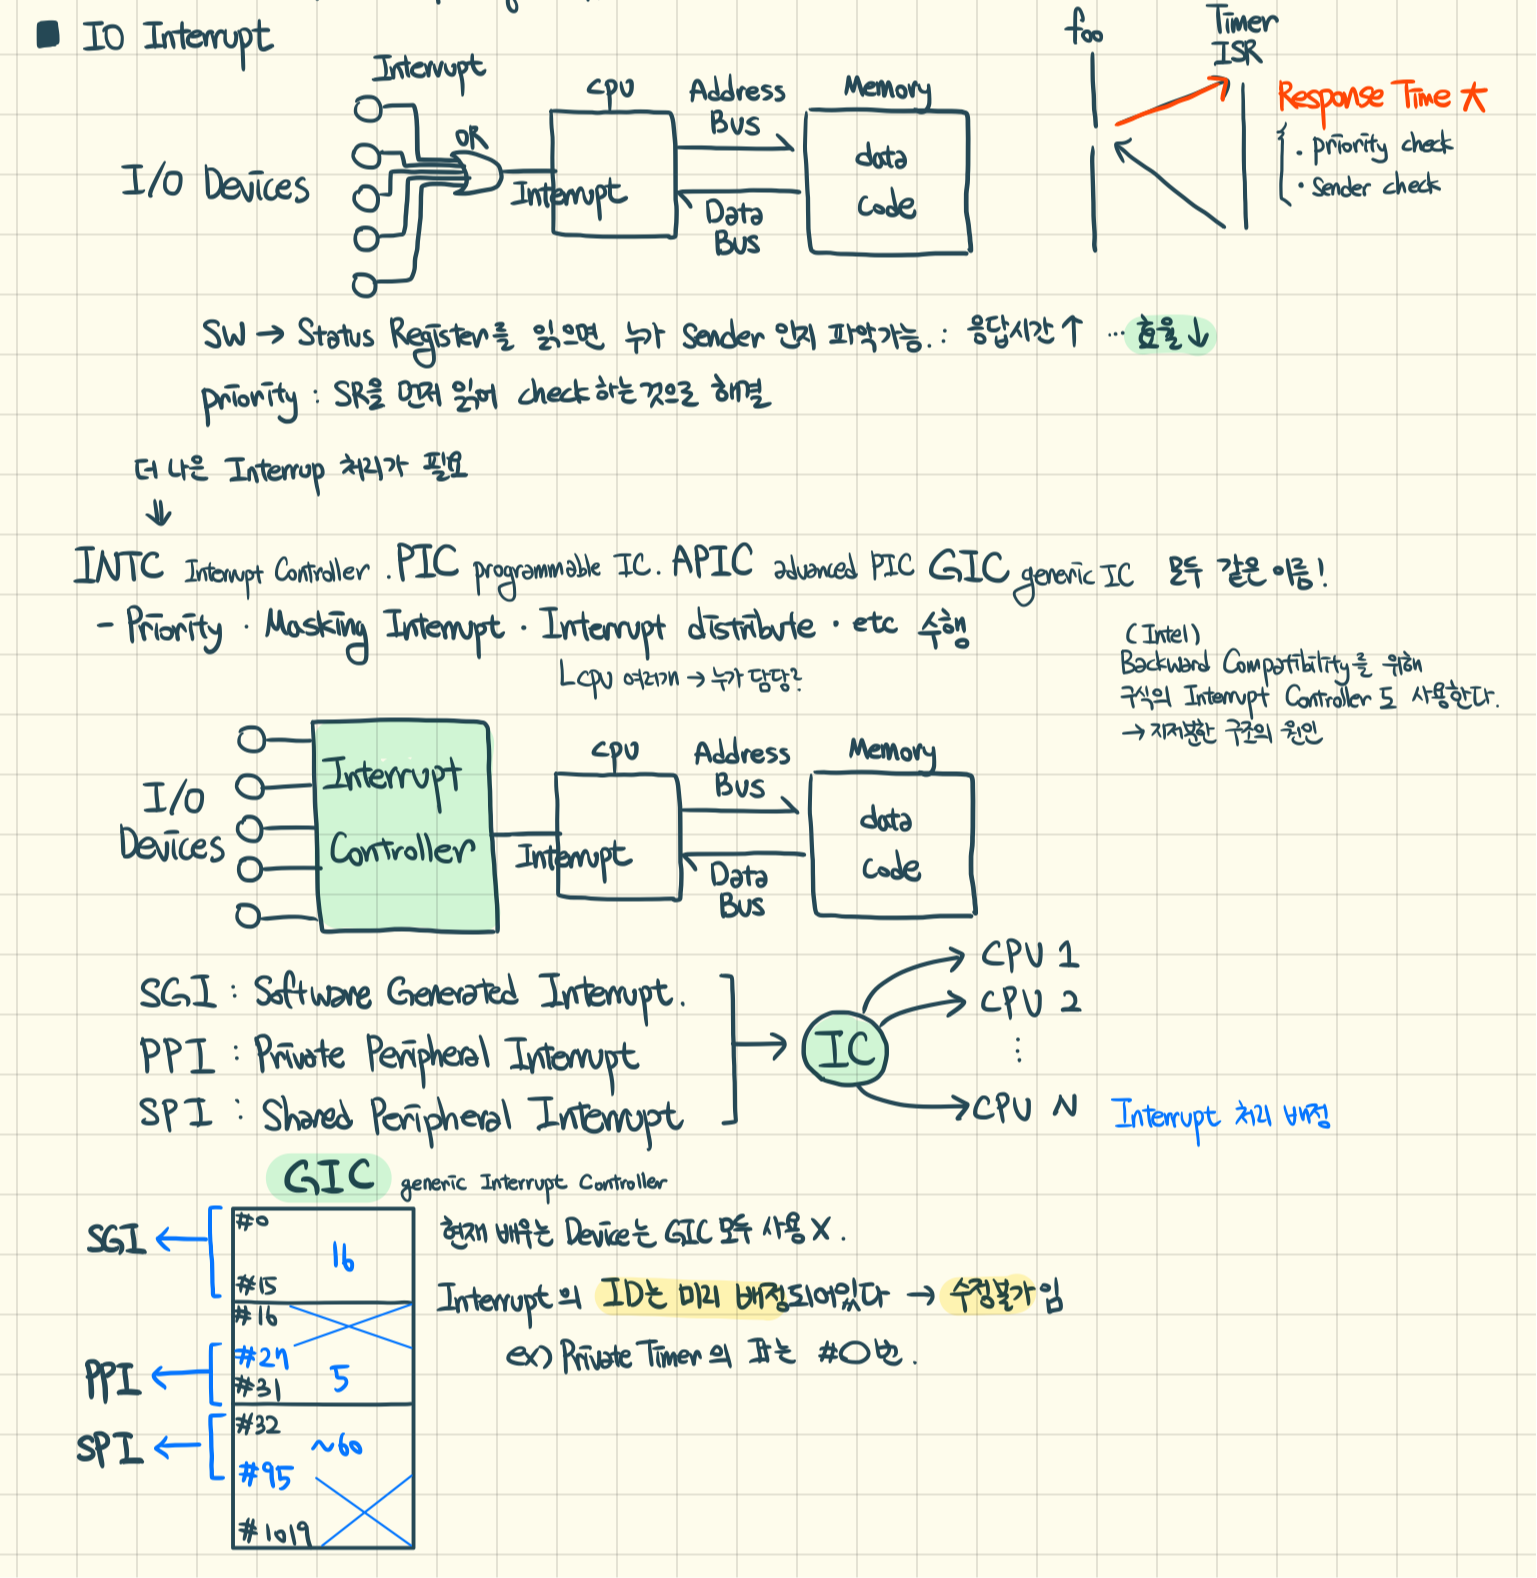 ■ IO Interrupt
Interrupt
I/O Devices
OR
Interrupt
CPU
Address
Bus
Data
Bus
Memory
data
code
foo
Timer
ISR
Response Time ★
· priority check
· Sender check
SW → Status Register를 읽으면 누가 Sender 인지 파악가능. : 응답시간↑ … 효율↓
priority : SR을 먼저 읽어 check하는것으로 해결
더 나은 Interrup 처리가 필요
⇓
INTC Interrupt Controller . PIC programmable IC. APIC advanced PIC GIC generic IC 모두 같은 이름!
- Priority · Masking Interrupt · Interrupt distribute · etc 수행
CPU 여러개 → 누가 담당?
(Intel)
Backward Compatibility를 위해
구식의 Interrupt Controller도 사용한다.
→ 지저분한 구조의 원인
I/O
Devices
Interrupt
Controller
Interrupt
CPU
Address
Bus
Data
Bus
Memory
data
code
SGI : Software Generated Interrupt.
PPI : Private Peripheral Interrupt
SPI : Shared Peripheral Interrupt
IC
CPU 1
CPU 2
⋮
CPU N
Interrupt 처리 배정
GIC generic Interrupt Controller
SGI
#0
16
#15
#16
PPI
#27
5
#31
SPI
#32
~60
#95
#1019
현재 배우는 Device는 GIC 모두 사용 X.
Interrupt의 ID는 미리 배정되어있다 → 수정불가임
ex) Private Timer의 #O번.